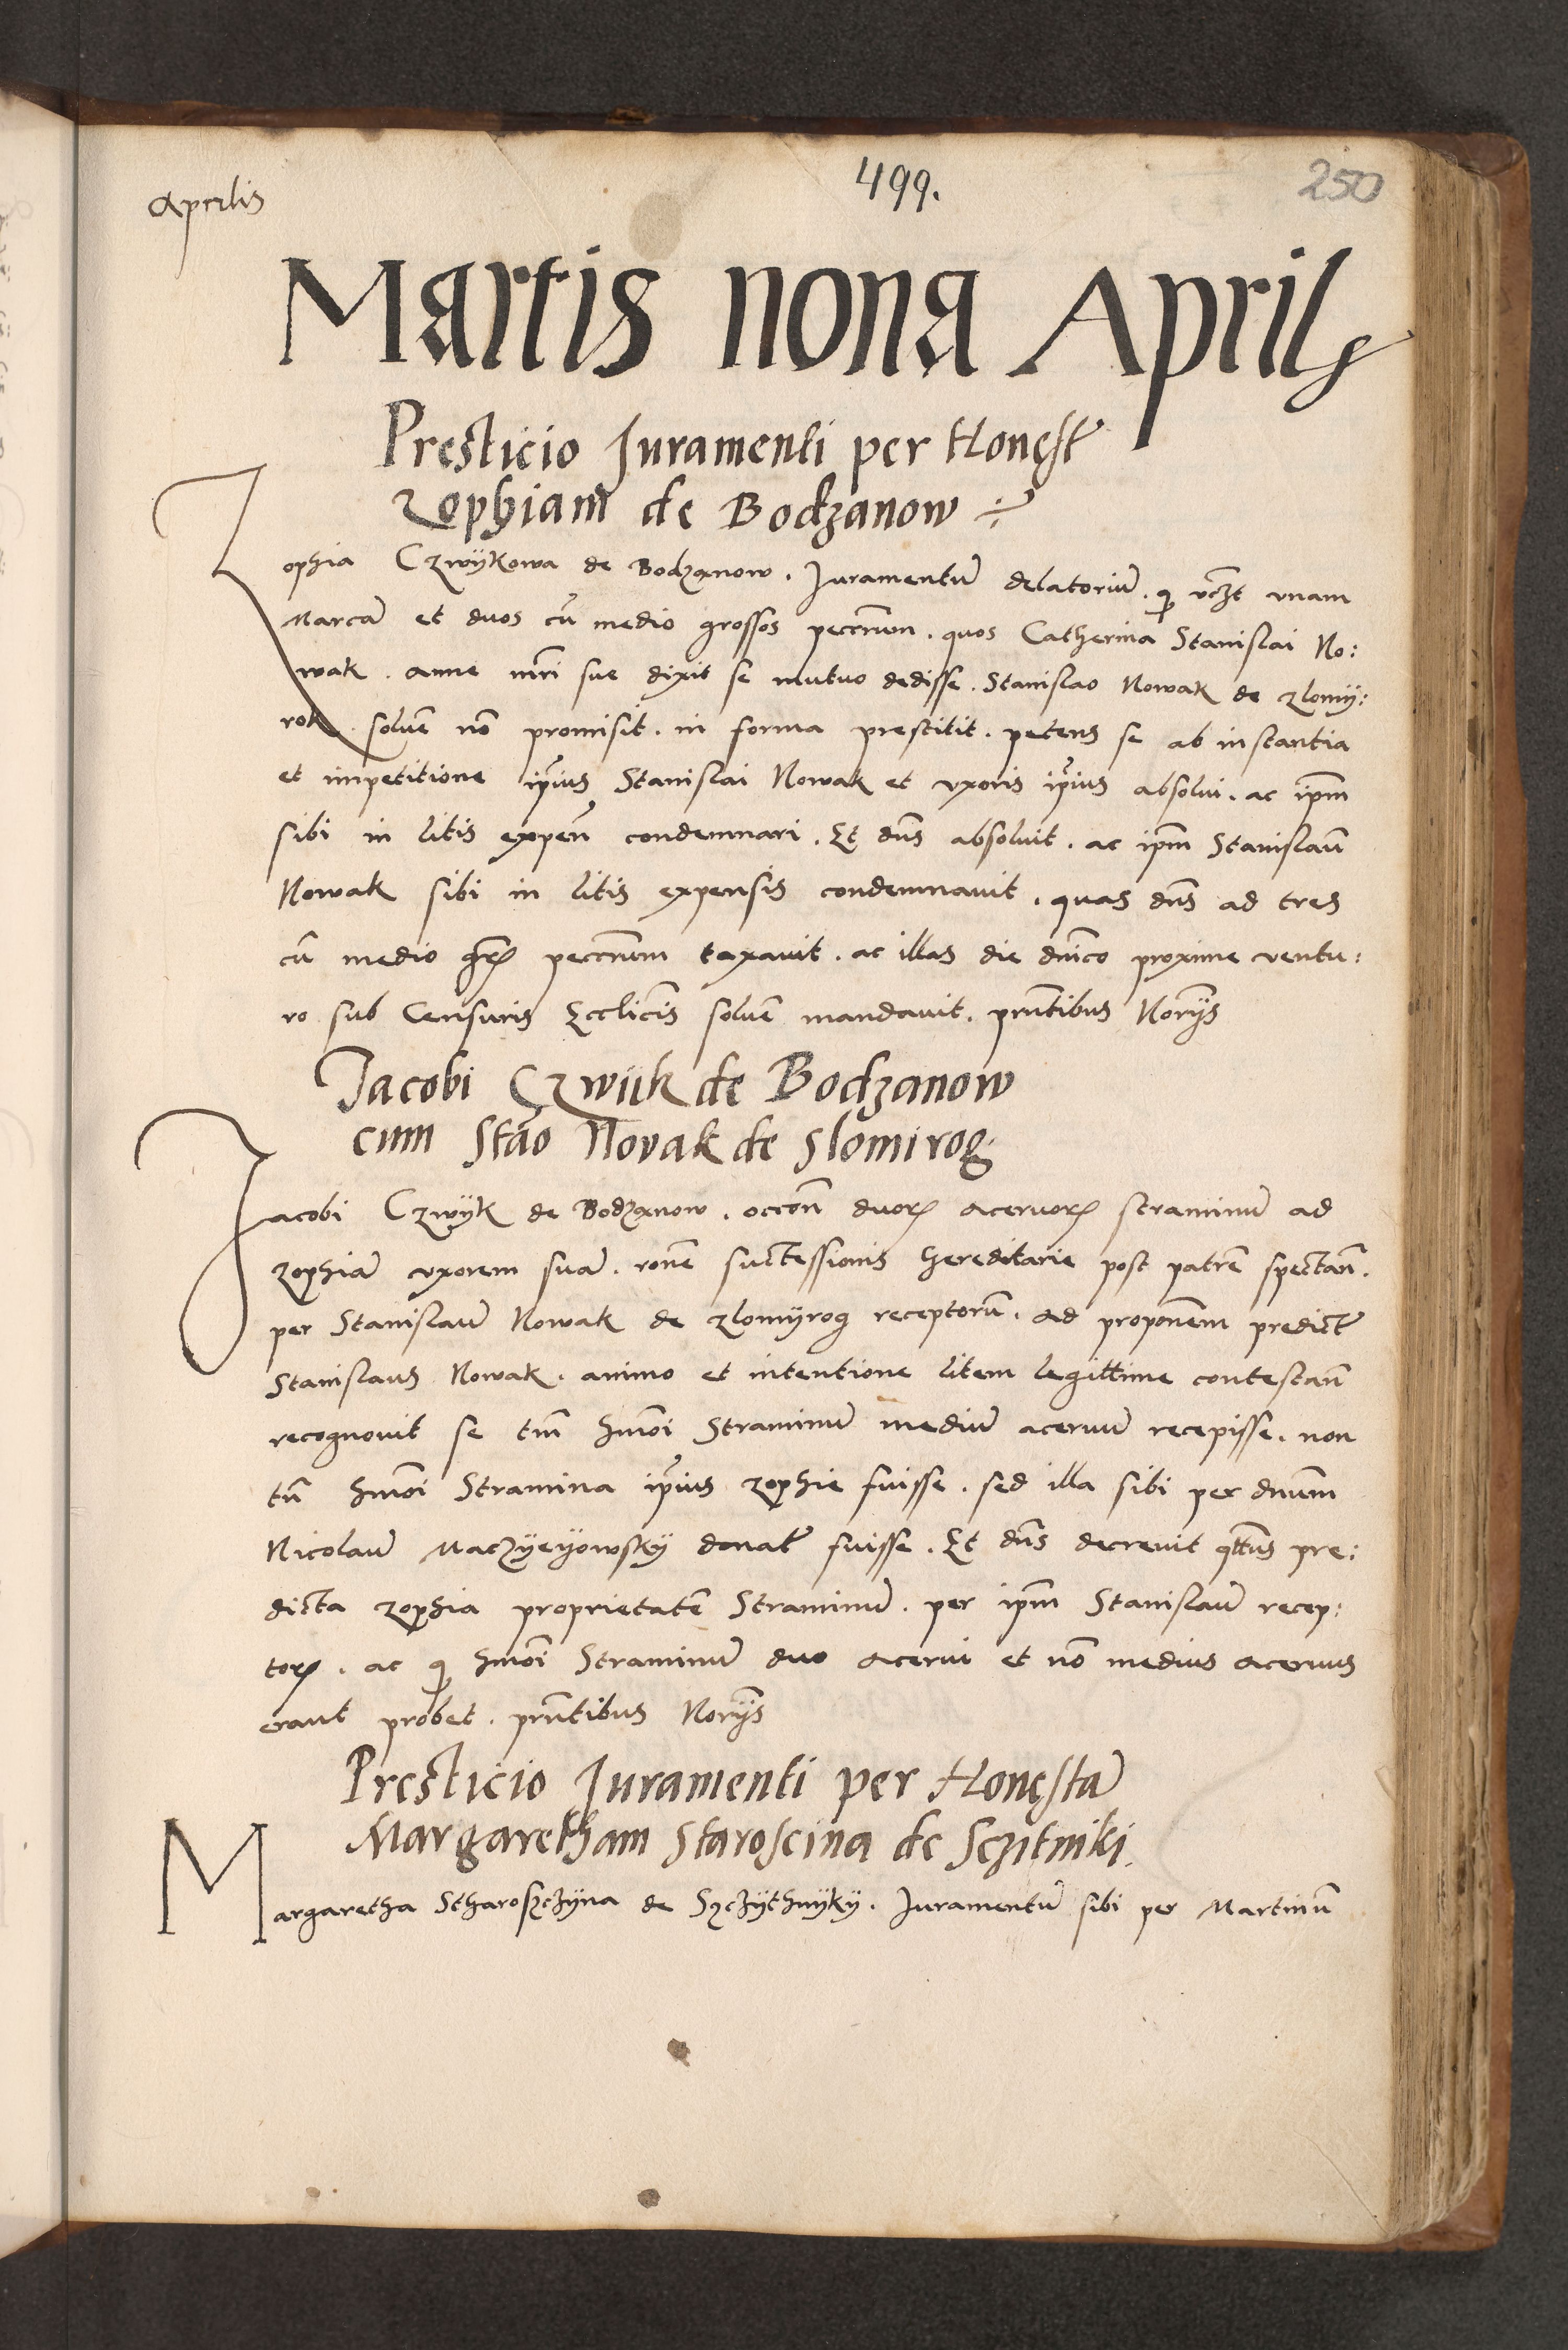 Aprilis
499.
250
Martis nona April
Presticio Juramenti per Honest
Zophiam de Bodzanow
Zophia Czwÿkowa de Bodzanow. Juramentũ delatoriũ. unam
Marcã et duos cũ medio grossos quos Catherina Stanislai No:
wak. anne mr̃i sue dixit se mutuo dedisse. Stanislao Nowak de zlomÿ:
rok. solvẽ nõ promisit. in forma prestitit. petens se ab instantia
et impetitione ip̃ius Stanislai Nowak et uxoris ip̃ius absolui. ac ip̃m
sibi in litis expeñ condemnari. Et dñs absoluit. ac ip̃m Stanislaũ
Nowak sibi in litis expensis condemnauit. quas dñs ad tres
cũ medio taxauit. ac illas die dñico proxime ventu:
ro sub Censuris Eccl̃icis solvẽ mandauit. pñtibus Norÿs
Jacobi Czwik de Bodzanow
cum Stãо Novak de Slomirog
Jacobi Czwÿk de Bodzanow. occoñ duoꝝ aceruoꝝ straminũ ad
zophiã uxorem suã. rõne suctessionis hereditarie post patrẽ spectañ.
per Stanislaũ Nowak de zlomÿrog receptorũ. ad proponẽm predict̃
Stanislaus Nowak. animo et intentione litem legittime contestañ
recognouit se tm̃ hmõi Straminũ mediũ aceruũ recepisse. non
tñ hmõi Stramina ip̃ius zophie fuisse. sed illa sibi per dnũm
Nicolaũ Maczÿeÿowskÿ donat̃ fuisse. Et dñs decreuit qt̃nus pre:
dicta zophia proprietatẽ Straminũ. per ip̃m Stanislaũ recep:
toꝝ. ac ꝙ hmõi Straminũ duo acerui et nõ medius aceruus
erant probet. pñtibus Norÿs
Presticio Juramenti per Honestã
Margaretham Staroscina de Sczitniki.
Margaretha Stharosczÿna de Sczÿthnÿkÿ. Juramentũ sibi per Martinũ